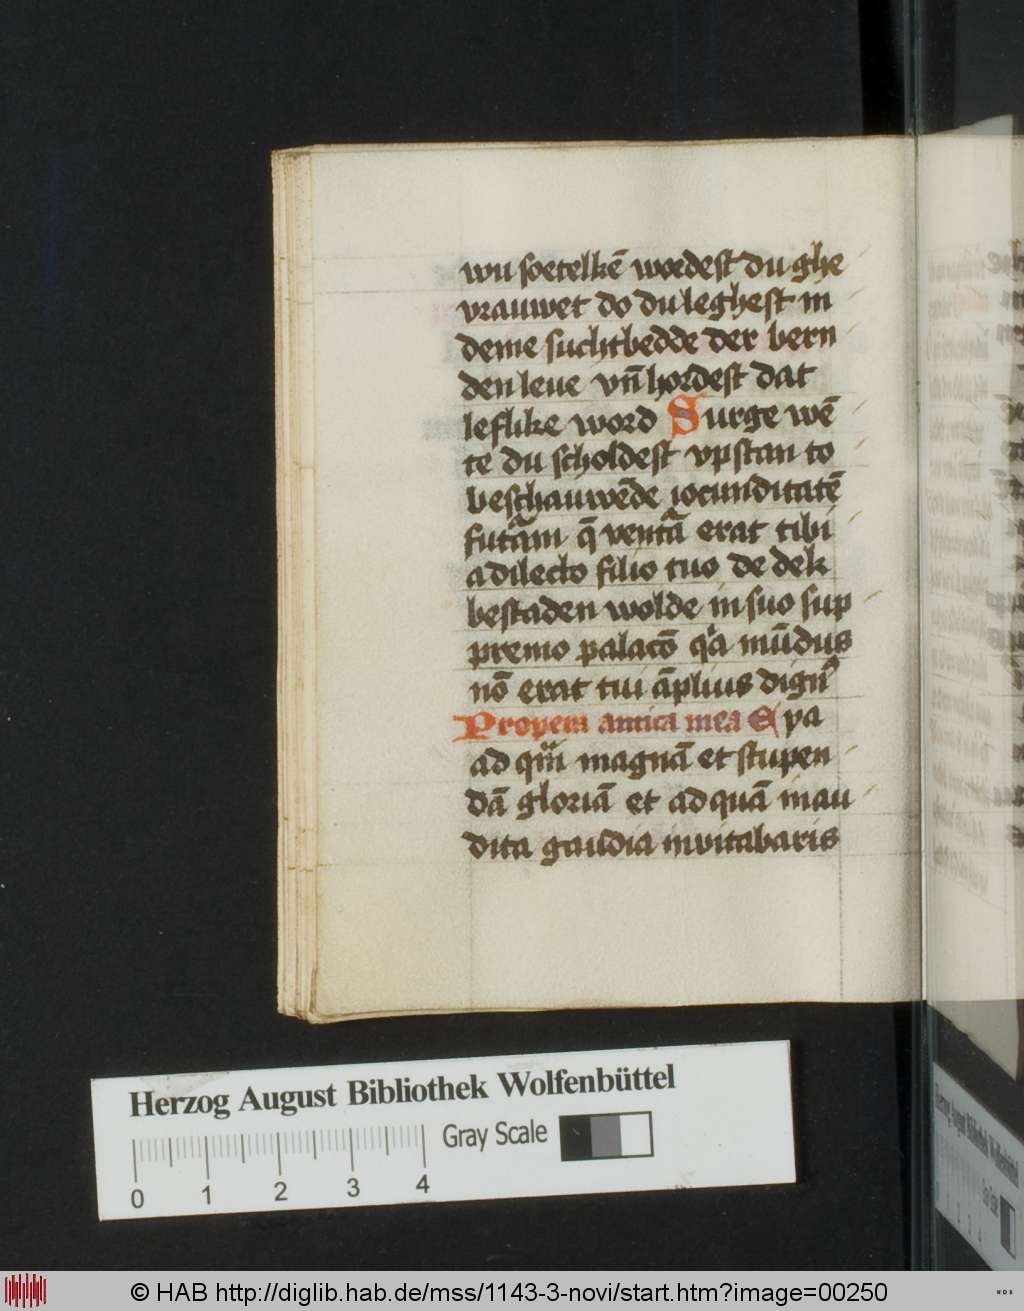 wu soetelkē wordest du ghe
vrauwet do du leghest in
deme suchtbedde der bern
den leue vn̄ hordest dat
leflike word Surge wē
te du scholdest vpstan to
beschauwēde iocunditatē
futam q̄ ventā erat tibi
a dilecto filio tuo de dek
bestaden wolde in suo sup
premo palacō qa mūdus
nō erat tui āplius dign9
Propera amica mea Eya
ad qm magnā et stupen
dā gloriā et ad quā inau
dita gaudia invitabaris
Herzog August Bibliothek Wolfenbüttel
Gray Scale
0 1 2 3 4
© HAB http://diglib.hab.de/mss/1143-3-novi/start.htm?image=00250